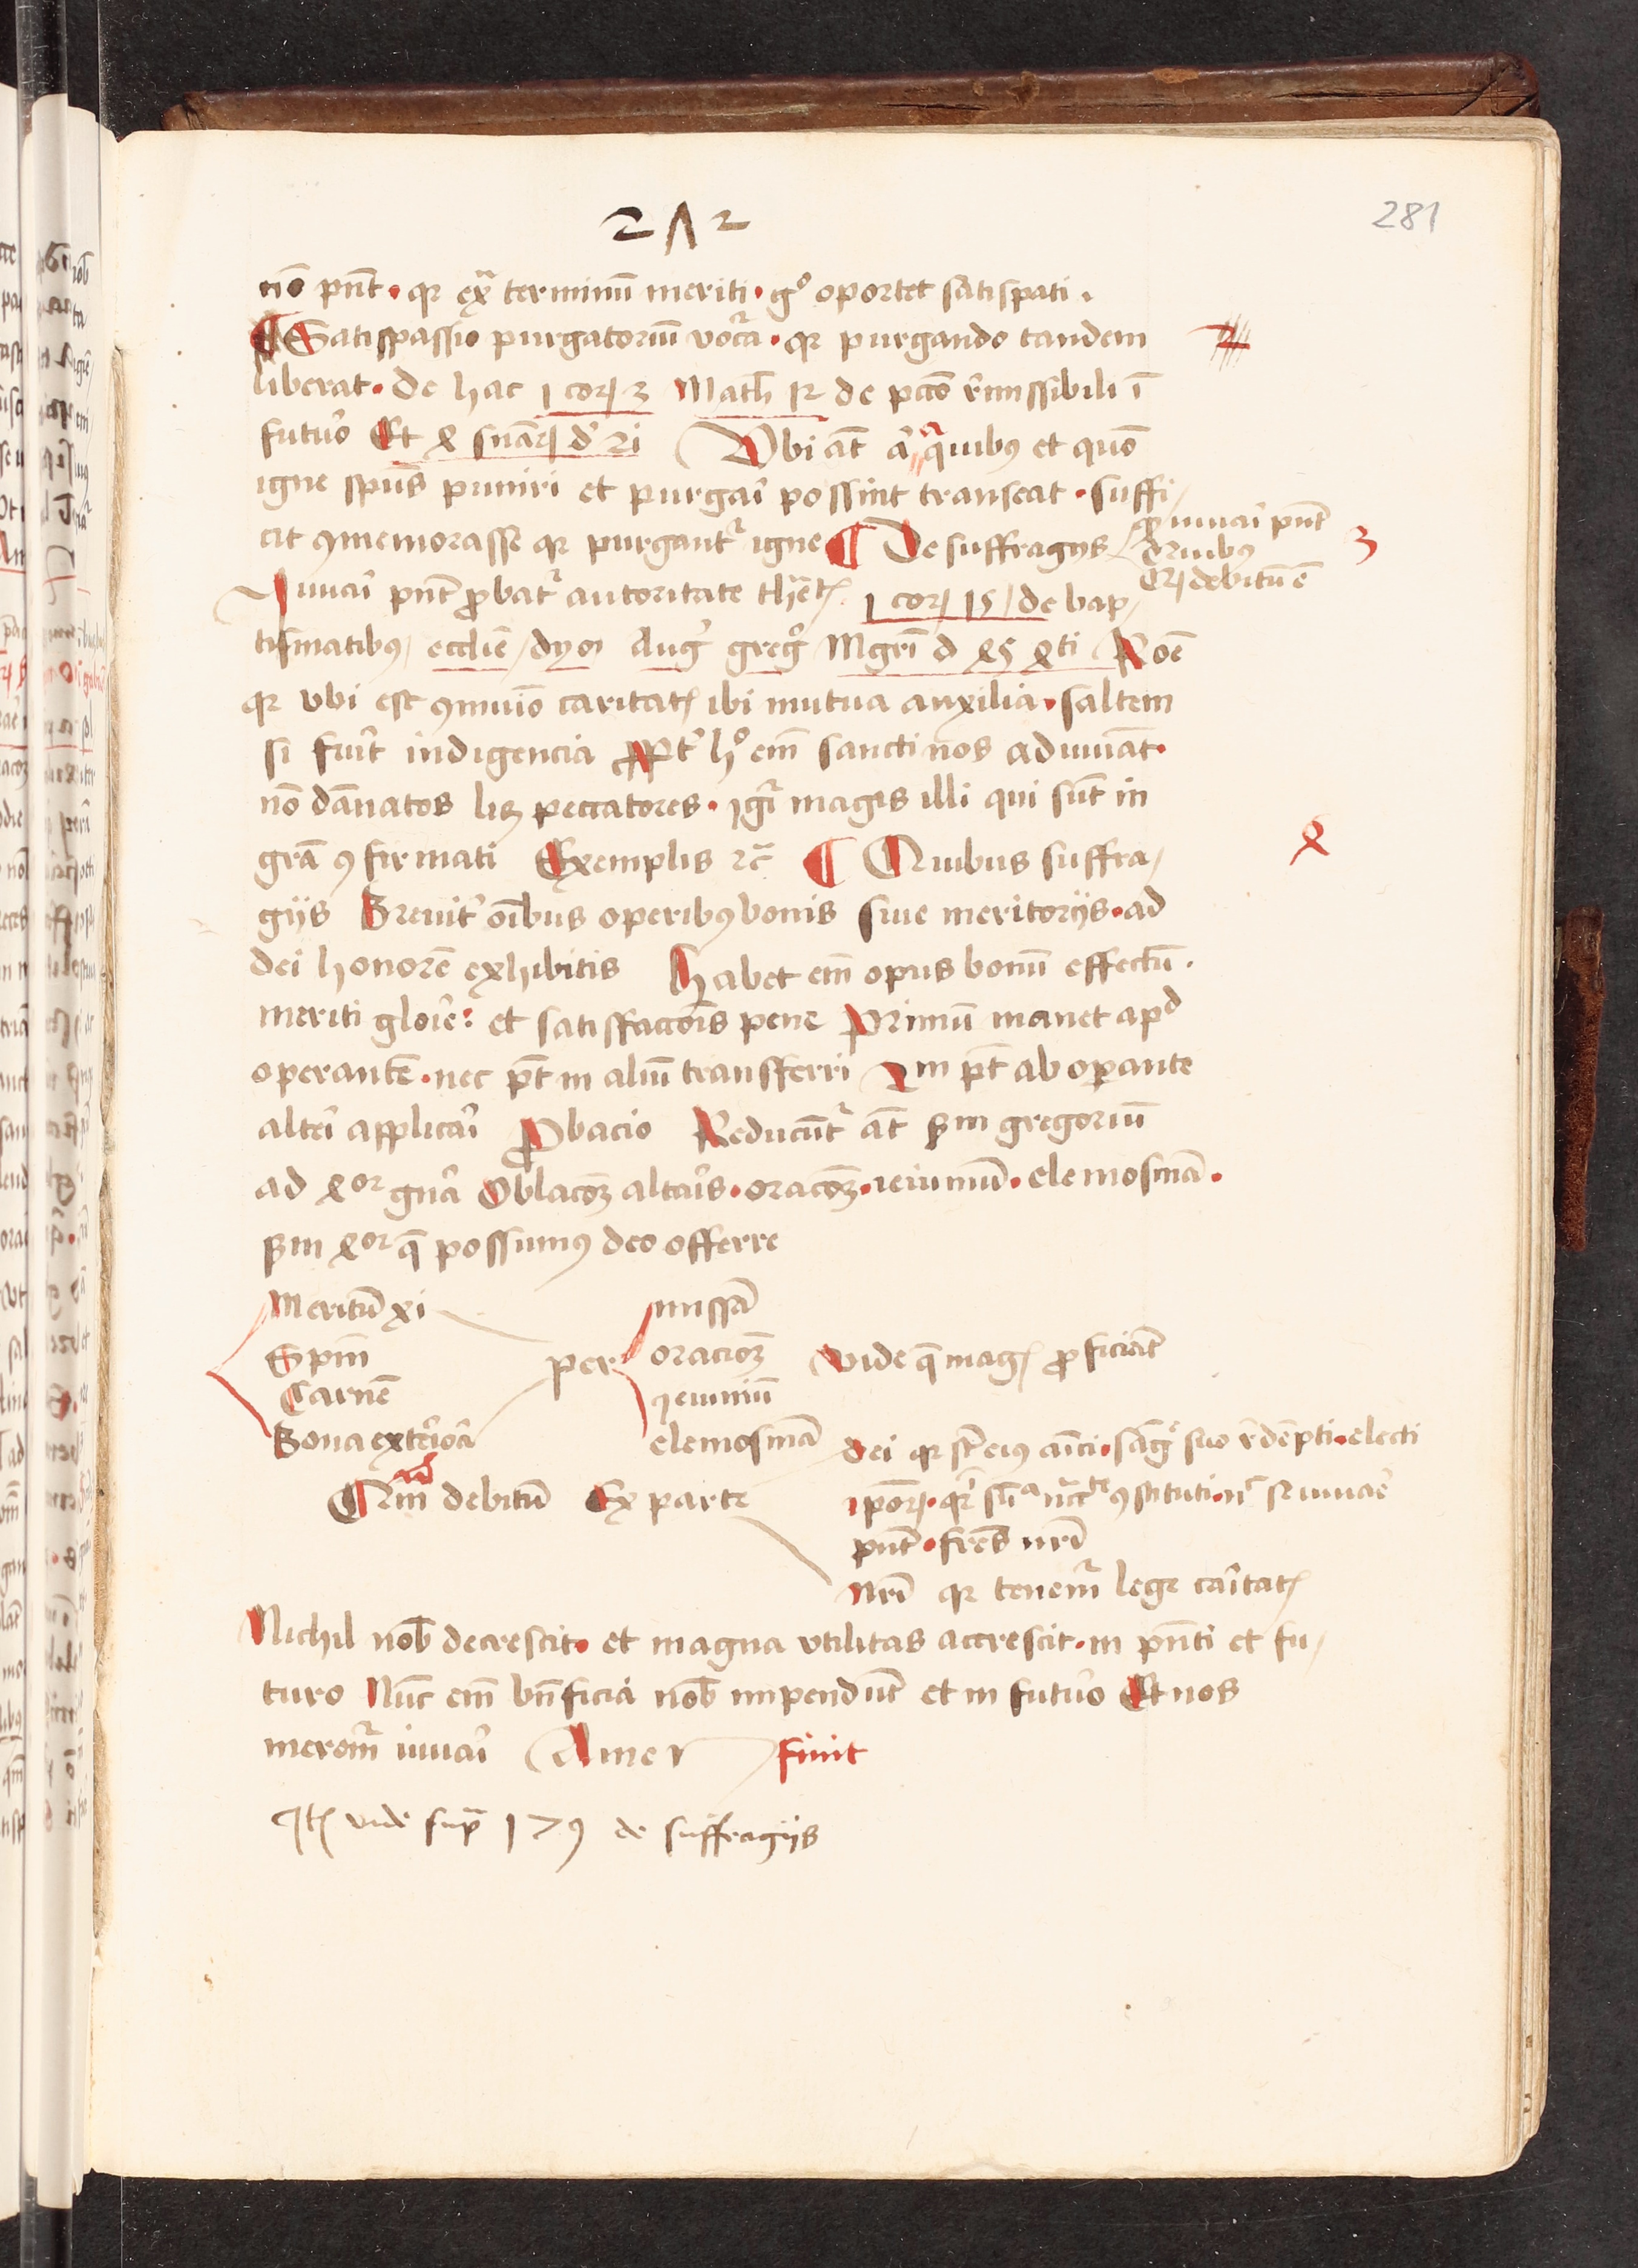 2Λ2
281
nō pn̄t · qr ex̄ terminū meriti · gͦ oportet satispati .
¶ Satispassio purgatoriū vocat᷑ · qr purgando tandem
liberat · de hac 1 corꝭ 3 Math̄ 12 de pctō remissibili ī
futuͦ Et 4 sn̄iarꝭ d 21 Vbi at̄ a quibꝰ et quō
igne spūs puniri et purgari possint transeat · suffi
cit ꝯmemorasse qr purgant᷑ igne ¶ De suffragijs
ꝙ iuuari pn̄t
Quibus
Qꝛ debitū ē
3
Iuuari pn̄t ꝓbat᷑ autoritate
1 corꝭ 15 / de bap
tismatibꝰ / ecclie / dyo Aug᷑ gregͦ Mgr̄i d 45 4ti Roē
qr vbi est ꝯmunio caritatꝭ ibi mutua auxilia · saltem
si fuit indigencia Ppt᷑ hͦ em̄ sancti nos adiuuāt ·
nō dānatos lꝫ peccatores · igr̄ magis illi qui sūt in
grā ꝯfirmati Exemplis ⁊c̄ ¶ Quibus suffra
4
gijs Breuit᷑ oībus operibꝰ bonis siue meritorijs · ad
dei honorē exhibitis Habet em̄ opus bonū effectū .
meriti glorie : et satisfaccōis pene Primū manet apᵈ
operantē · nec pt̄ in aliū transferri 2m pt̄ ab operante
alteri applicari Ꝓbacio Reducūt᷑ at̄ ẜm gregoriū
ad 4or gn̄a Oblacōꝫ altaris · oracōꝫ · ieiuniū · elemosinā .
ẜm 4or q̄ possumꝰ deo offerre
Meritū xi
Spm̄
Carnē
Bona exteriora
per
missā
oracioꝫ
ieiuniū
elemosinā
Vide q̄ magꝭ ꝓficiāt
Qm̄ debitū Ex parte
dei qr st̄ eius amici · sāgͤ suo redēpti · electi
ipoꝝ · ꝯstituti · se iuuare
pn̄t · fres nr̄i
Nri qr tenem᷑ lege caritatꝭ
Nichil nob̄ decrescit · et magna vtilitas accrescit · in pn̄ti et fu
turo Nūc em̄ bn̄ficia nob̄ impendūt et in futuͦ Et nos
merem᷑ iuuari Amen finit
Itꝫ vide supͣ 179 de suffragijs